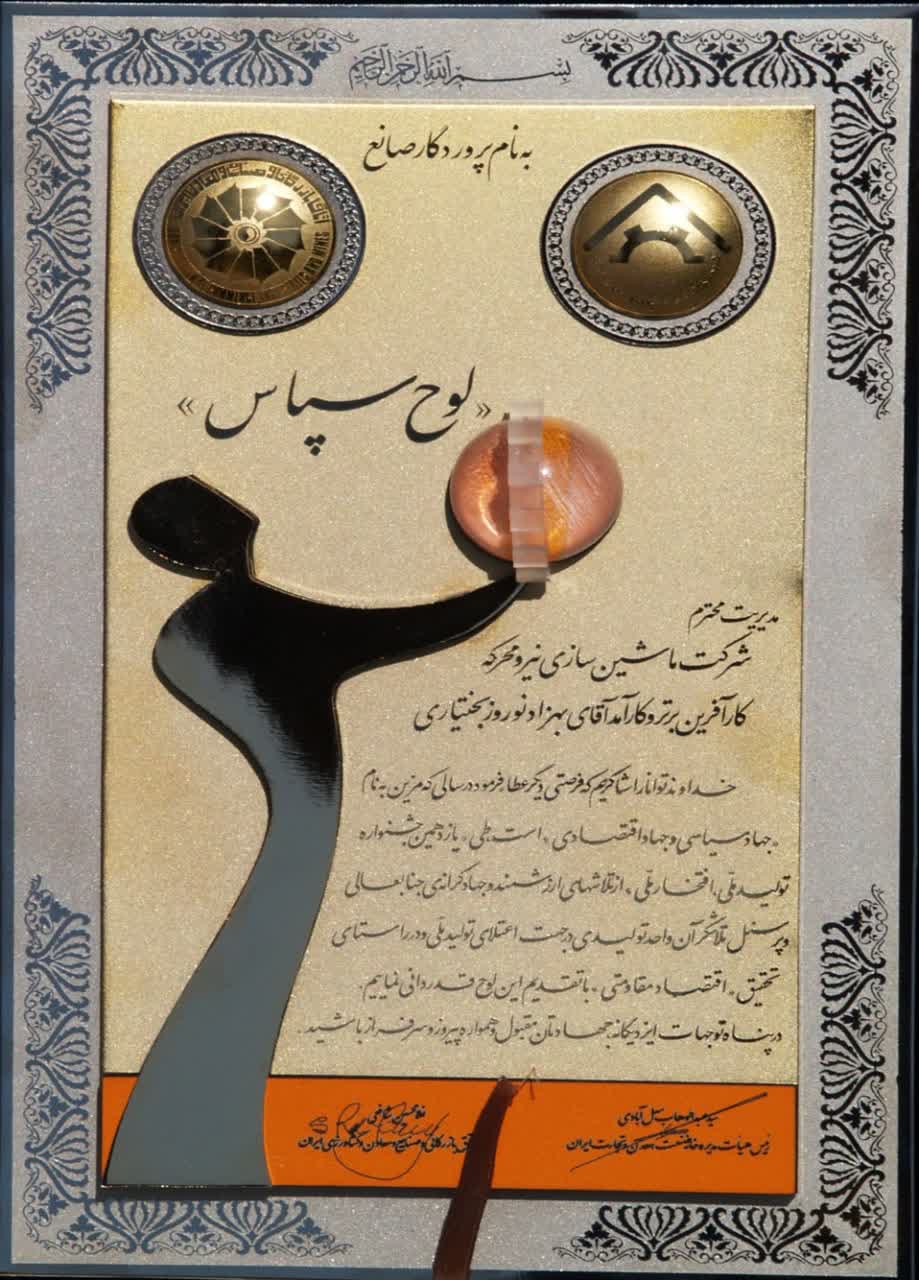 بسم الله الرحمن الرحیم
به نام پروردگار صانع
« لوح سپاس »
مدیریت محترم
شرکت ماشین سازی نیرو محرکه
کارآفرین برتر و کارآمد آقای بهزاد نوروز بختیاری
خداوند توانا را شاکریم که فرصتی دیگر عطا فرمود در سالی که مزین به نام
«جهاد سیاسی و جهاد اقتصادی» است، طی «یازدهمین جشنواره
تولید ملّی، افتخار ملّی» از تلاشهای ارزشمند و جهادگرانه‌ی جنابعالی
و پرسنل تلاشگر آن واحد تولیدی در جهت اعتلای تولید ملّی و در راستای
تحقیق «اقتصاد مقاومتی» با تقدیم این لوح قدردانی نماییم.
در پناه توجهات ایزد یگانه جهادتان مقبول و همواره پیروز و سرفراز باشید.
سید عبدالوهاب سهل آبادی
رئیس هیأت مدیره خانه صنعت، معدن و تجارت ایران
غلامحسین شافعی
اتاق بازرگانی و صنایع و معادن و کشاورزی ایران